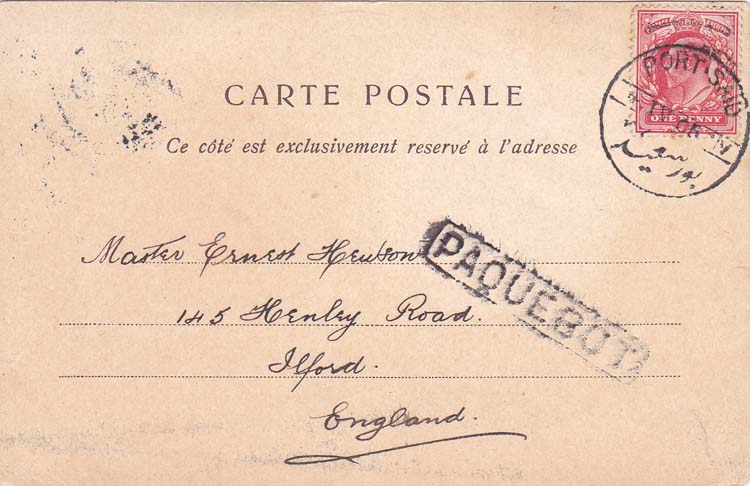 PORT-SAID
ONE PENNY
بور سعيد
CARTE POSTALE
Ce côté est exclusivement reservé à l'adresse
PAQUEBOT
Master Ernest Hewson
145 Henley Road.
Ilford.
England.